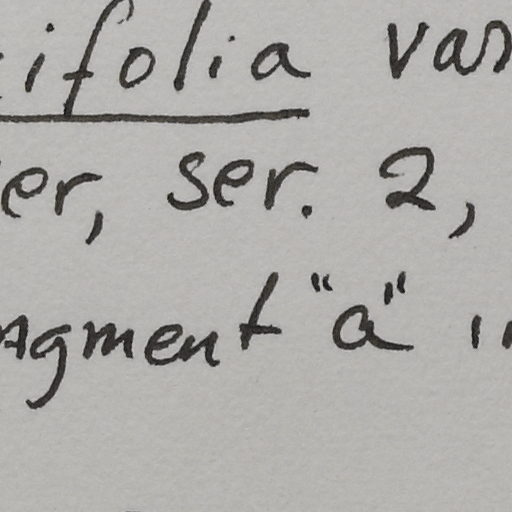 ifolia var
er, ser. 2,
agment "a" i